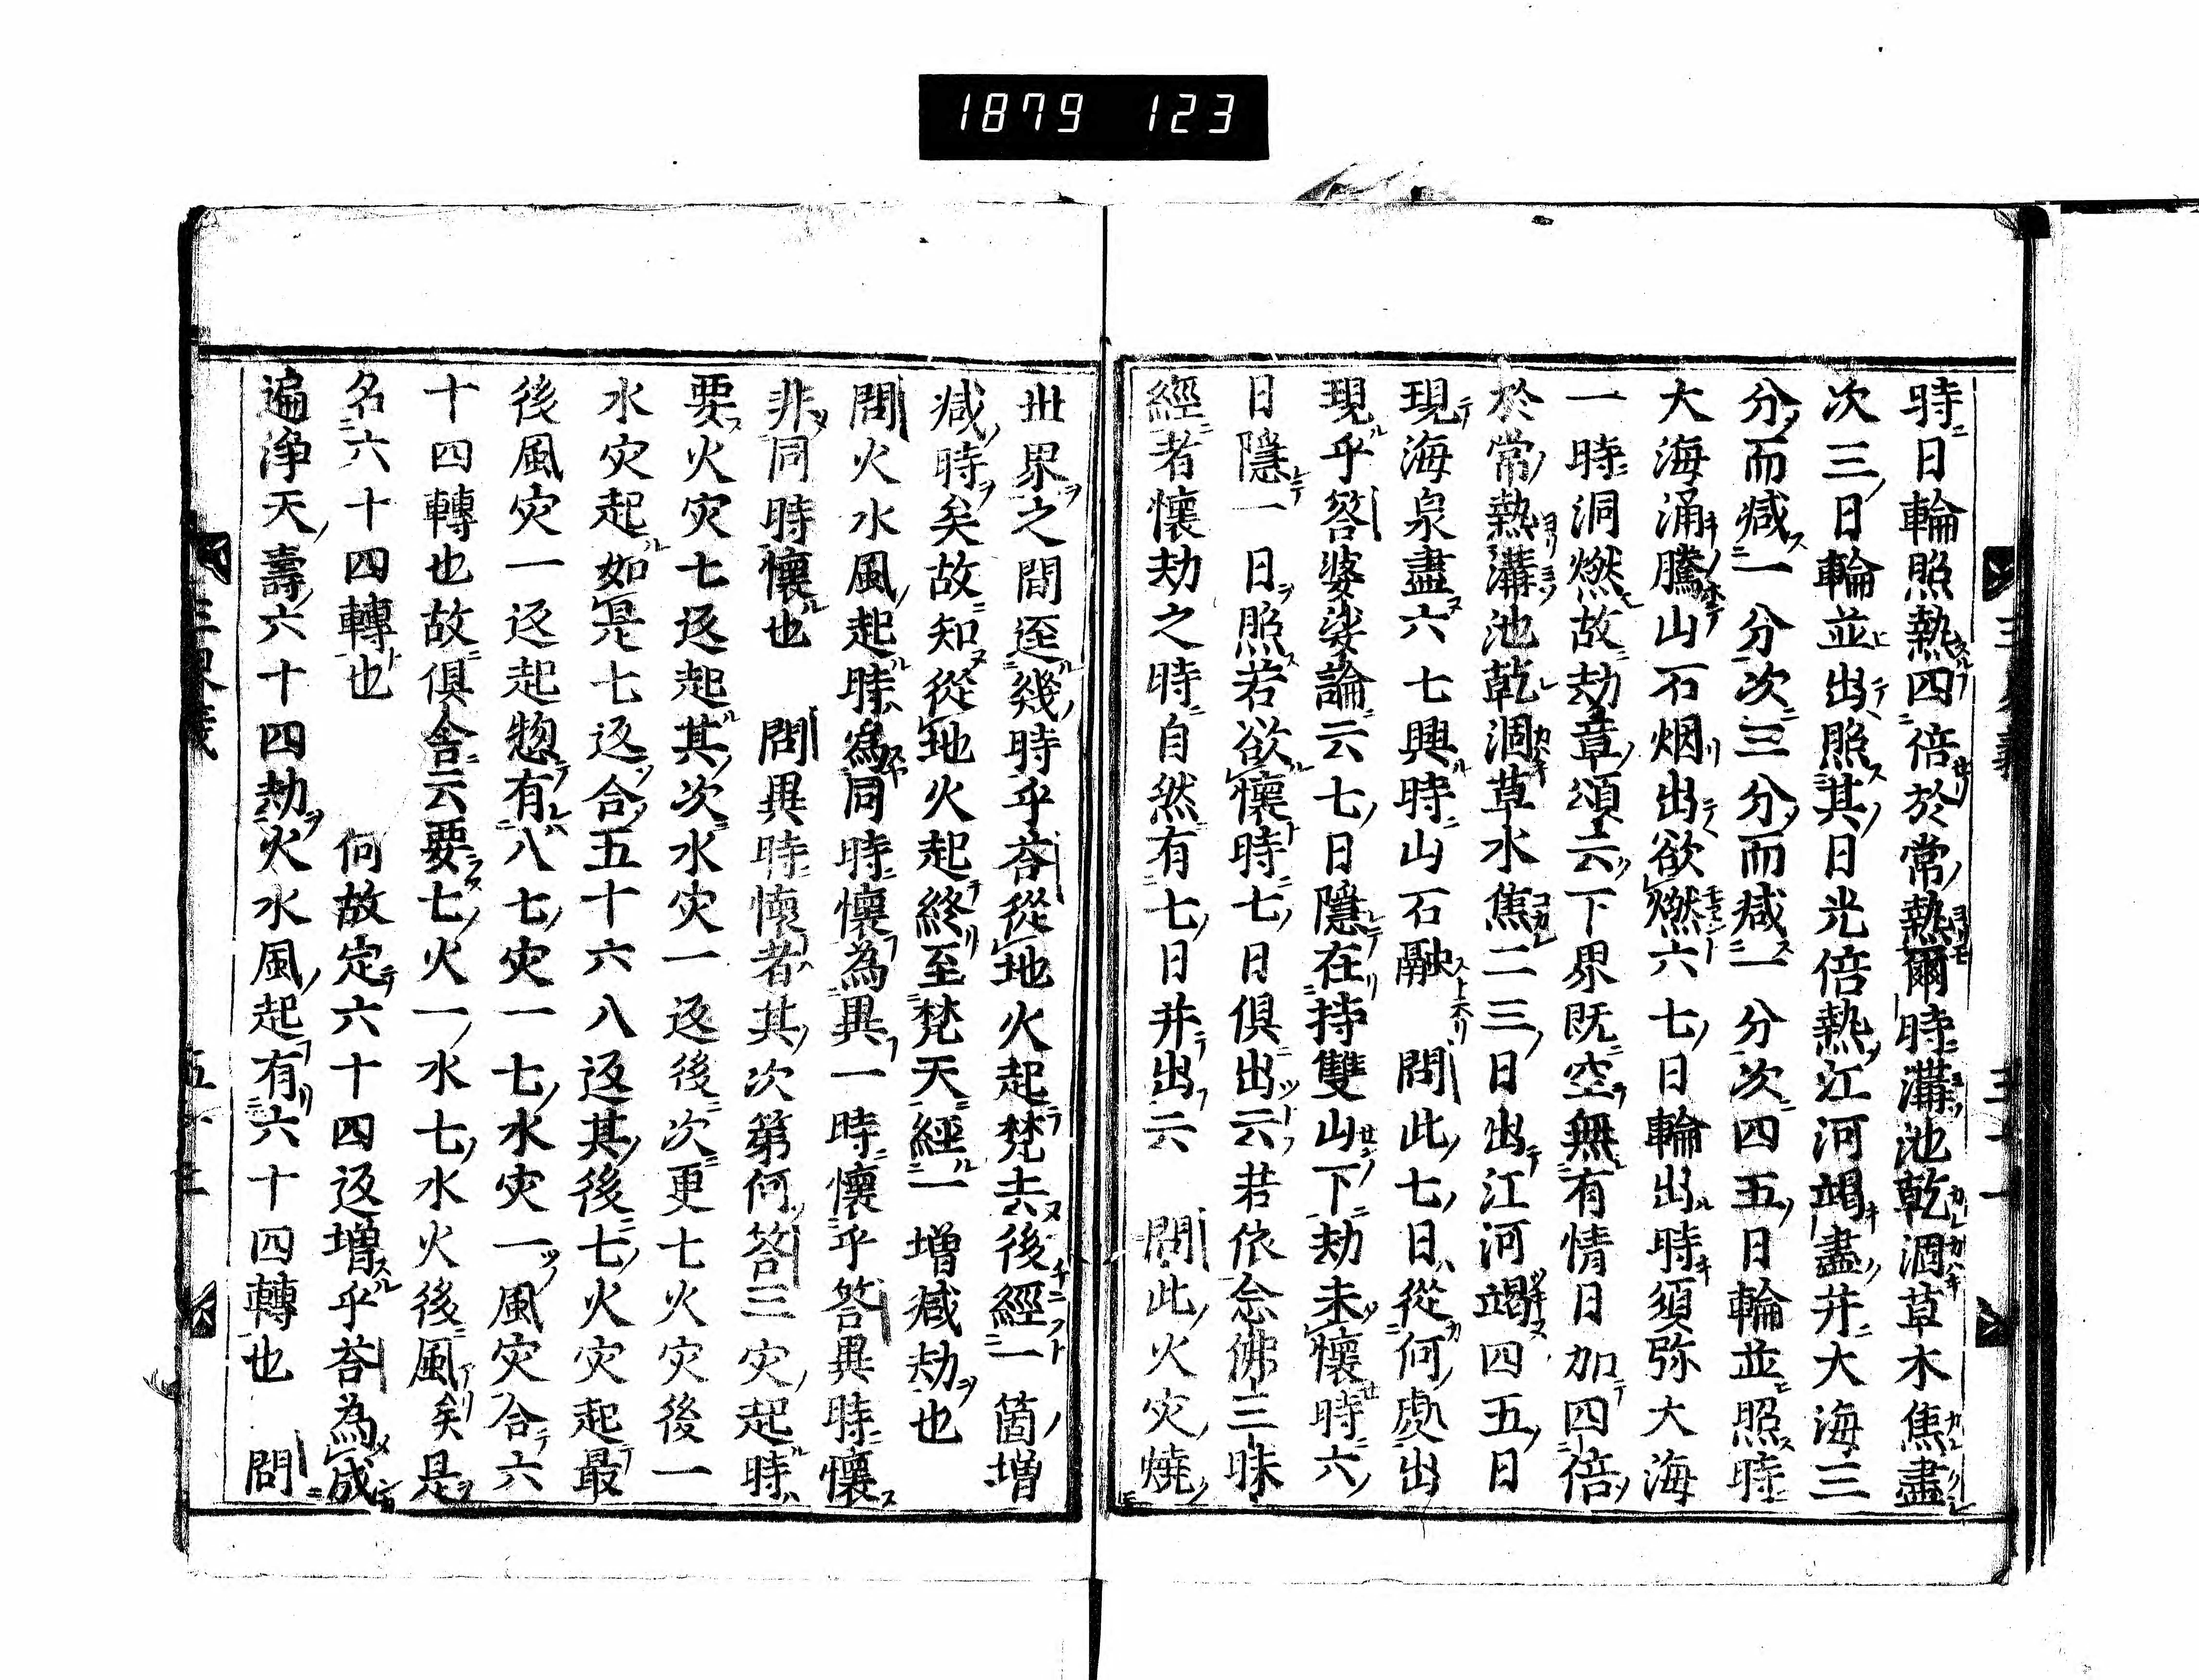 1879 123
時日輪照熱四倍於常熱爾時溝池乾涸草木焦盡
次三日輪並出照其日光倍熱江河竭盡井大海三
分而減一分次三分而減一分次四五日輪並照時
大海涌騰山石烟出欲燃六七日輪出時須弥大海
一時洞燃故劫章頌云下界既空無有情日加四倍
於常熱溝池乾涸草水焦二三日出江河竭四五日
現海泉盡六七興時山石融 問此七日從何處出
現乎答婆娑論云七日隱在持雙山下劫未懷時六
日隱一日照若欲懷時七日俱出云若依念佛三昧
經者懷劫之時自然有七日并出云 問此火灾燒
世界之間逕幾時乎荅從地火起梵去後經一箇増
减時矣故知從地火起終至梵天經一増减劫也
問火水風起時為同時懷為異一時懷乎答異時懷
非同時懷也 問異時懷者其次第何答三灾起時
要火灾七返起其次水灾一返後次更七火灾後一
水灾起如是七返合五十六八返其後七火灾起最
後風灾一返起惣有八七灾一七水灾一風灾合六
十四轉也故俱舍云要七火一水七水火後風矣是
名六十四轉也 何故定六十四返増乎荅為成
遍淨天壽六十四劫火水風起有六十四轉也 問